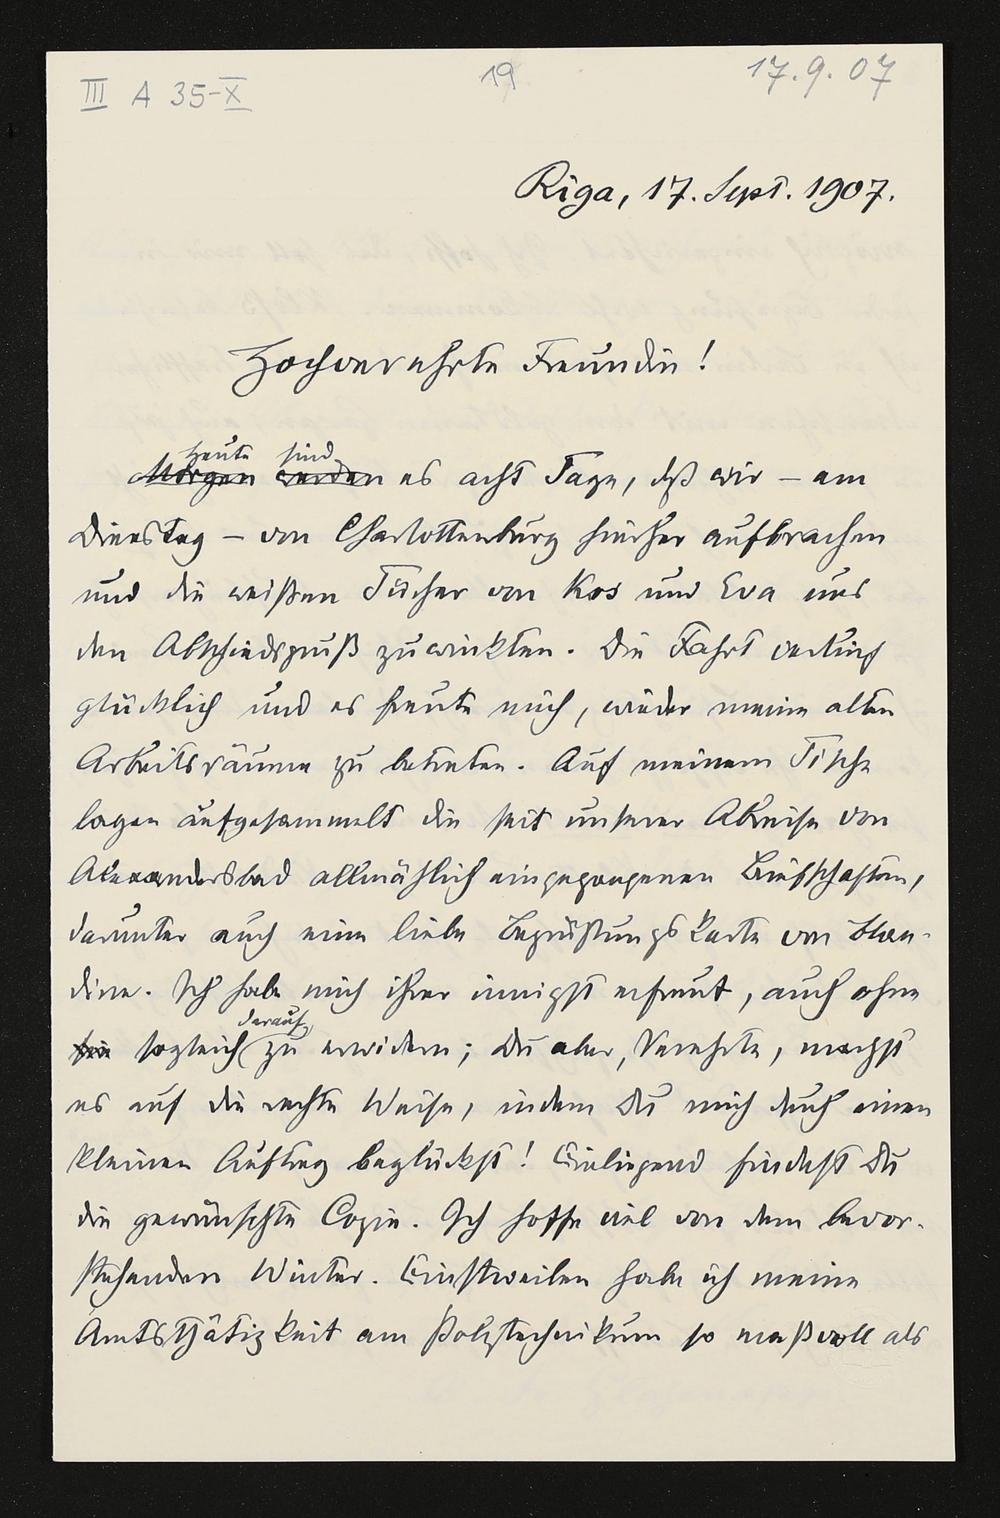 III A 35-X
19
17.9.07
Riga, 17. Sept. 1907.
Hochverehrte Freundin!
Heute sind
Morgen werden es acht Tage, dß wir – am
Dienstag – von Charlottenburg hierher aufbrachen
und die weißen Tücher von Kos und Eva uns
den Abschiedsgruß zuwinkten. Die Fahrt verlief
glücklich und es freute mich, wieder meine alten
Arbeitsräume zu betreten. Auf meinem Tische
lagen aufgesammelt die seit unserer Abreise von
Alexandersbad allmählich eingegangenen Briefschaften,
darunter auch eine liebe Begrüßungskarte von
dine. Ich habe mich ihrer innigst erfreut, auch ohne
darauf
sogleich zu erwidern; Du aber, Verehrte, machst
es auf die rechte Weise, indem Du mich durch einen
kleinen Auftrag beglückst! Einliegend findest Du
die gewünschte Copie. Ich hoffe viel von dem bevor-
stehenden Winter. Einstweilen habe ich meine
Amtsthätigkeit am Polytechnikum so maßvoll als